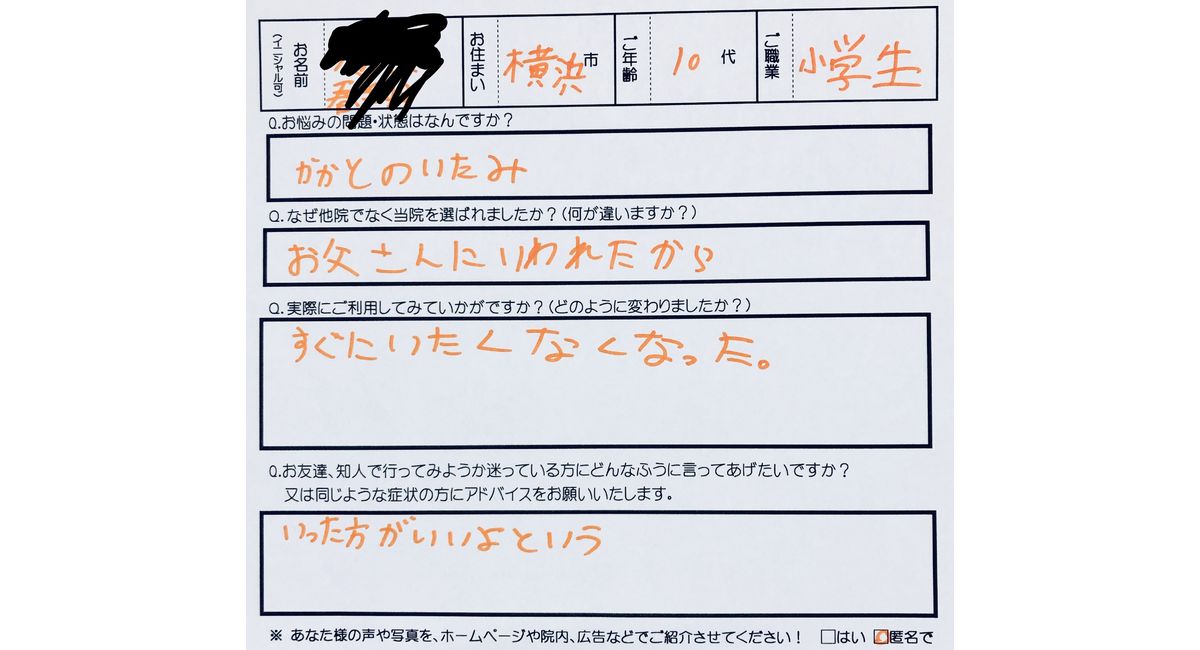 お名前 (イニシャル可) お住まい 横浜市 ご年齢 10代 ご職業 小学生
Q.お悩みの問題・状態はなんですか？
かかとのいたみ
Q.なぜ他院でなく当院を選ばれましたか？(何が違いますか？)
お父さんにいわれたから
Q.実際にご利用してみていかがですか？(どのように変わりましたか？)
すぐにいたくなくなった。
Q.お友達、知人で行ってみようか迷っている方にどんなふうに言ってあげたいですか？
又は同じような症状の方にアドバイスをお願いいたします。
いった方がいいよという
※ あなた様の声や写真を、ホームページや院内、広告などでご紹介させてください！ □はい □匿名で